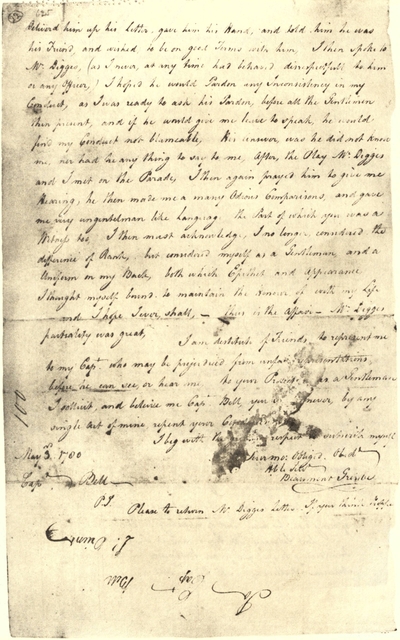 deliver'd him up his Letter, gave him his Hand, and told him he was
his Friend, and wished to be on good Terms with him, I then spoke to
Mr. Digges, (as I never, at any time had behaved disrespectfully to him
or any Officer,) I hoped he would Pardon any Inconsistency in my
Conduct, as I was ready to ask his Pardon, before all the Gentlemen
then present, and if he would give me leave to speak, he would
find my Conduct not blameable, His answer, was he did not know
me, nor had he any thing to say to me, After, the Play Mr. Digges
and I met on the Parade, I then again prayed him to give me
Hearing, he then made me a many Odious Comparisons, and gave
me very ungentleman like Language the Part of which you was a
Witness too, I then must acknowledge, I no longer considered the
difference of Rank, but considered myself as a Gentleman, and a
Uniform on my Back, both which Epithet and Appearance
I thought myself bound to maintain the Honour of with my Life
and I hope I ever shall, — this is the Affair — Mr. Digges
partiality was great,
I am destitute of Friends, to represent me
to my Capt. who may be prejudiced from
before he can see, or hear me to your Protection as a Gentleman
I sollicit, and believe me Capt. Bell, you never, by any
single Act of mine repent your
I beg with respect to subscribe myself
May 3. 1780
Obliged Obedt.
Hble Servt.
Capt. Bell
Beaumont
P.S.
Please to return Mr. Digges Letter
100